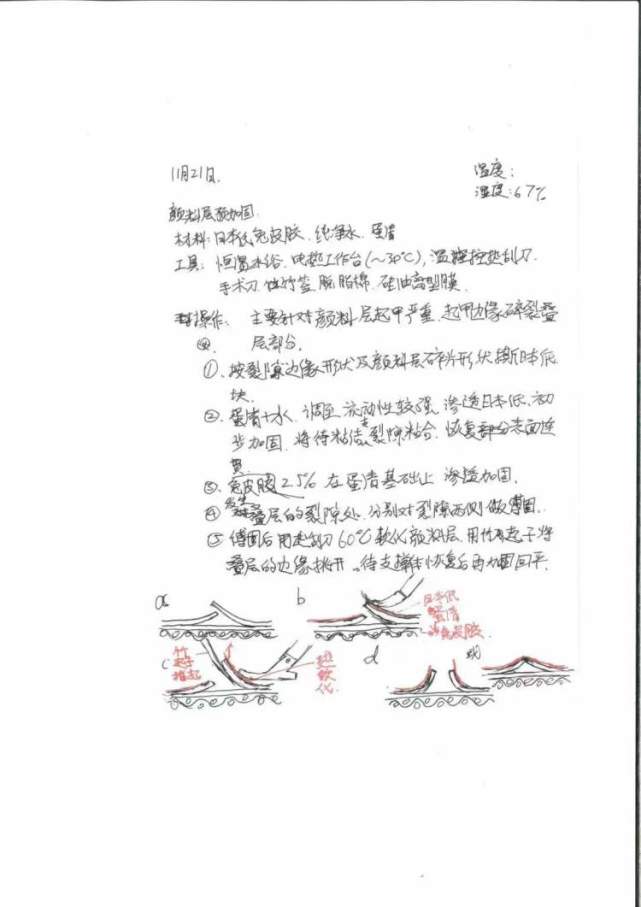 11月21日.
温度:
湿度:67%
颜料层预加固.
材料:日本纸、兔皮胶、纯净水、蛋清
工具: 恒温水浴、电热工作台(~30℃),温控热刮刀.
手术刀、竹签、脱脂棉、硅油离型膜.
操作: 主要针对颜料层起甲严重、起甲边缘碎裂叠
层部分.
①、按裂隙边缘形状及颜料层碎片形状撕日本纸
块.
②、蛋清+水、调至流动性较强、渗透日本纸、初
步加固、将待粘结之裂隙粘合、恢复部分表面连
贯
③、兔皮胶2.5%在蛋清基础上渗透加固.
④ 发生叠层的裂隙处、分别对裂隙两侧做溥固.
⑤ 溥固后用热刮刀60℃软化颜料层、用竹起子将
叠层的边缘挑开、待支撑体恢复后再加固回平.
a
b
日本纸
蛋清
兔皮胶.
c
竹
起子
挑起
热
软
化.
d
或